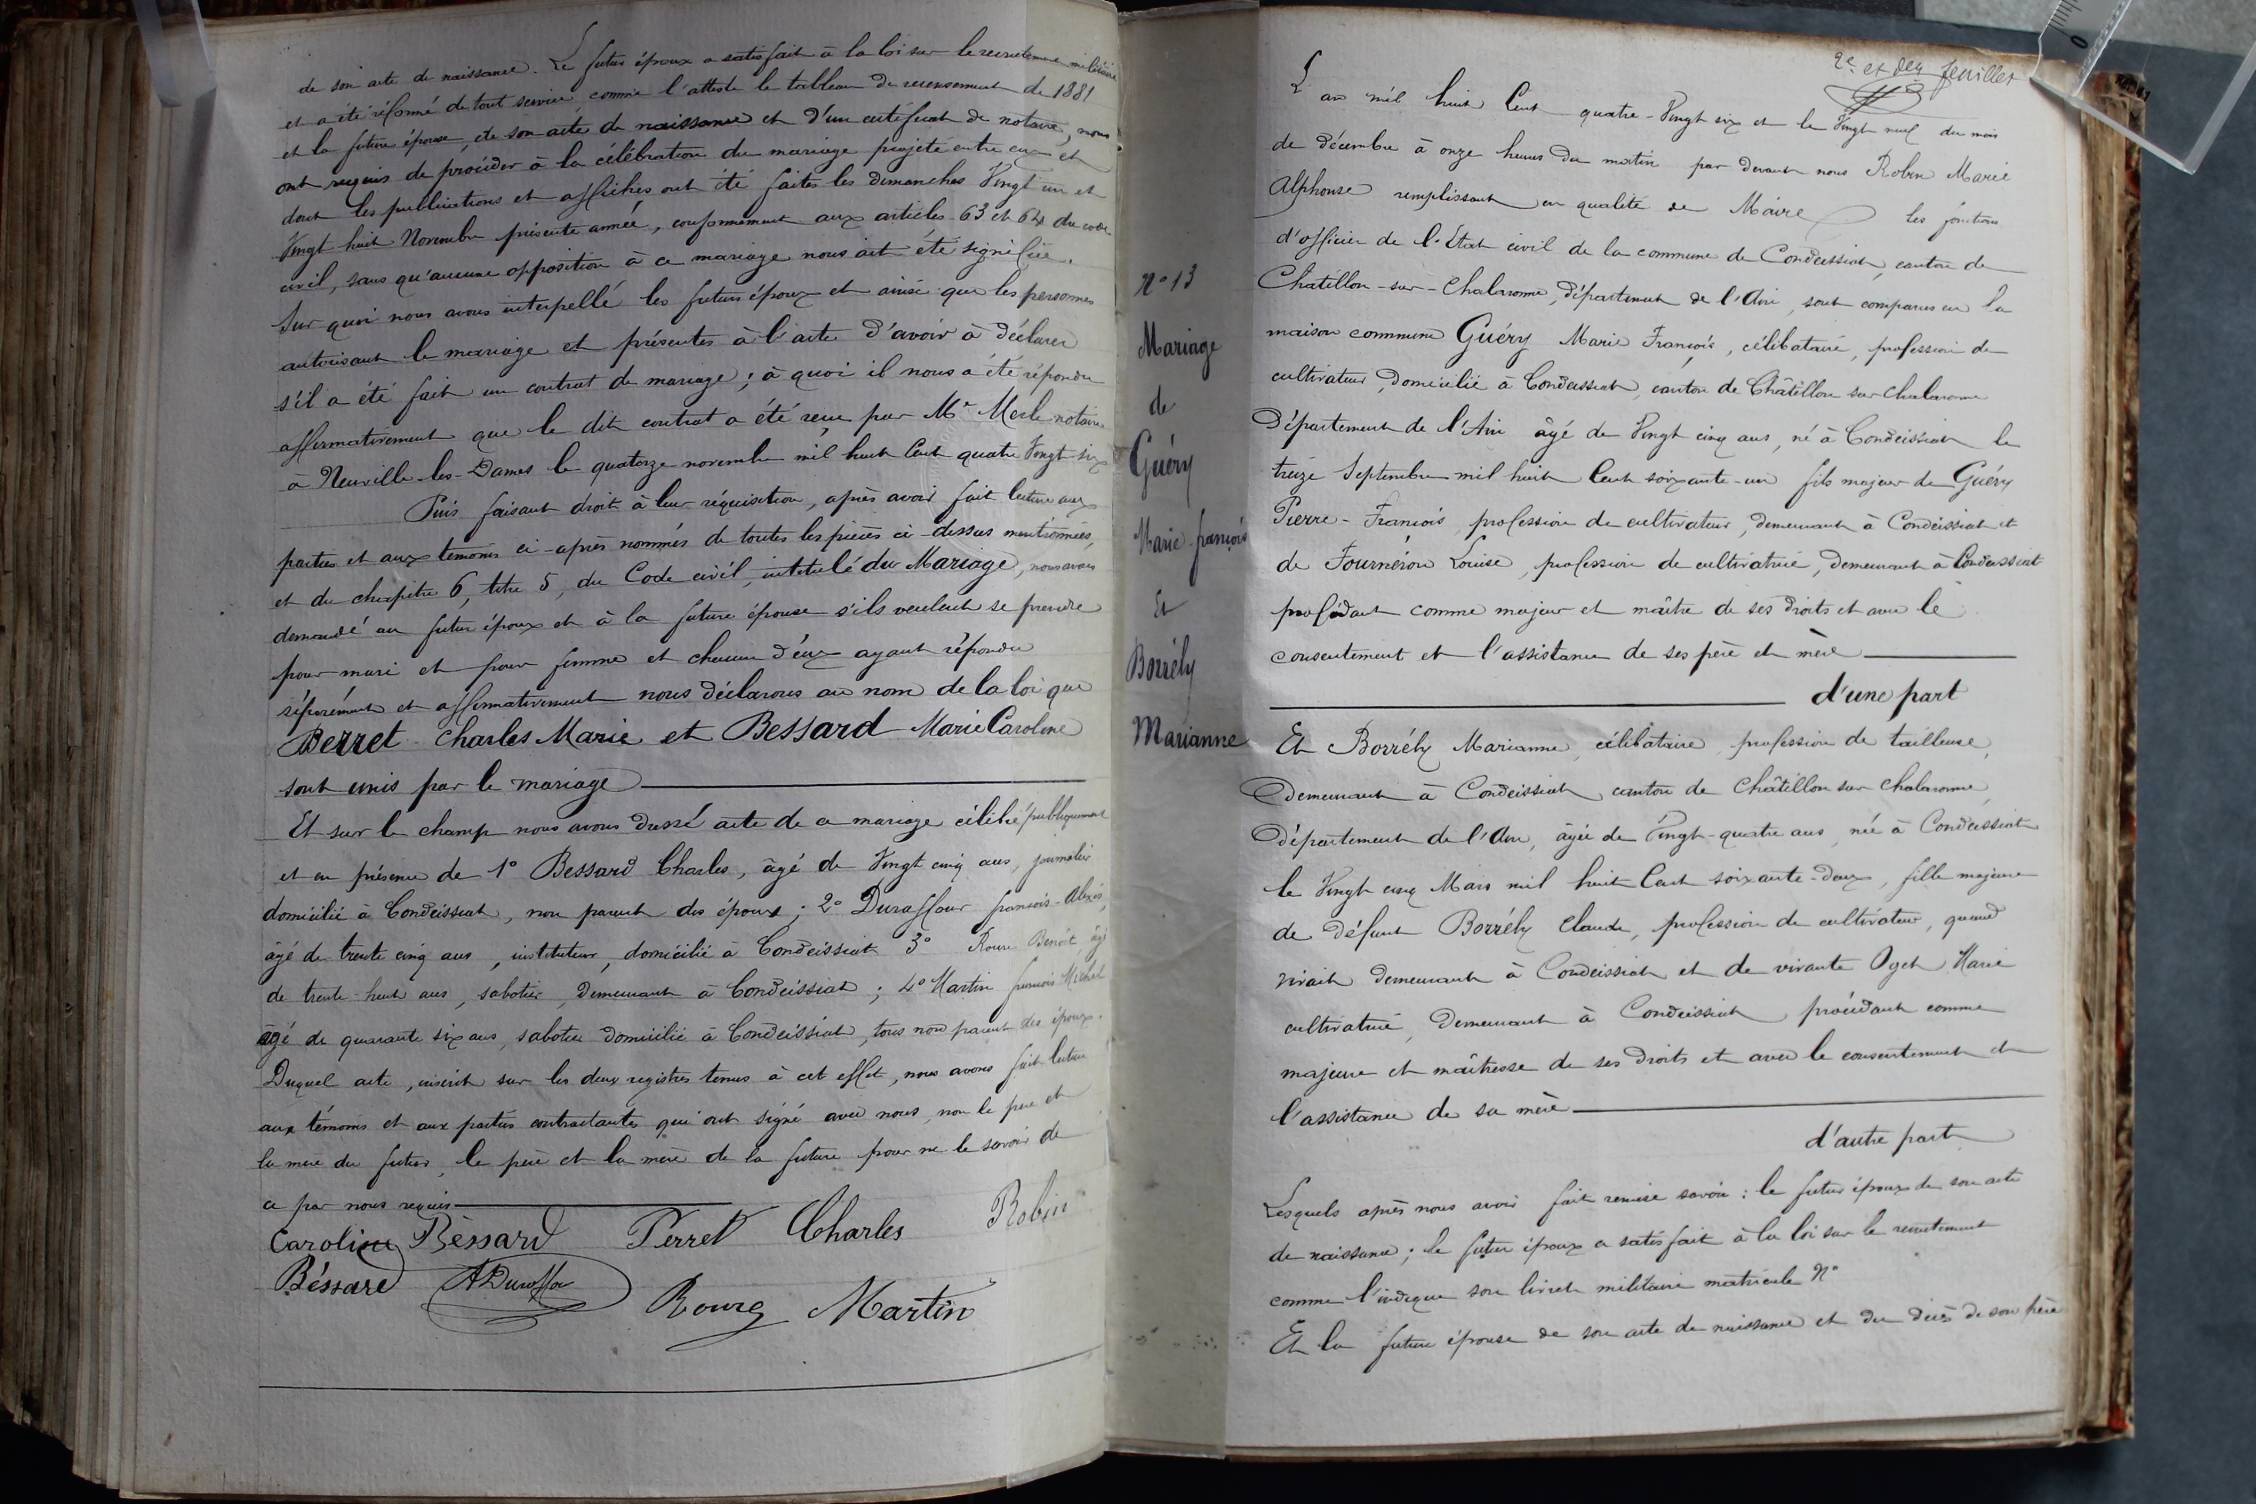 de son acte de naissance. Le futur époux a satisfait à la loi sur le recrutement militaire
et a été réformé de tout service comme l'atteste le tableau de recensement de 1881
et la future épouse, de son acte de naissance et d'un certificat de notaire, nous
ont requis de procéder à la célébration du mariage projeté entre eux et
dont les publications et affiches ont été faites les dimanches Vingt un et
Vingt huit Novembre présente année, conformément aux articles 63 et 64 du code
civil, sans qu'aucune opposition à ce mariage nous ait été signifiée.
Sur quoi nous avons interpellé les futurs époux et ainsi que les personnes
autorisant le mariage et présentes à l'acte d'avoir à déclarer
s'il a été fait un contrat de mariage; à quoi il nous a été répondu
affirmativement que le dit contrat a été reçu par Me Merle notaire
à Neuville-les-Dames le quatorze novembre mil huit Cent quatre Vingt-six
Puis faisant droit à leur réquisition, après avoir fait lecture aux
parties et aux témoins ci-après nommés de toutes les pièces ci-dessus mentionnées,
et du chapitre 6, titre 5, du Code civil, intitulé du Mariage, nous avons
demandé au futur époux et à la future épouse s'ils veulent se prendre
pour mari et pour femme et chacun d'eux ayant répondu
séparément et affirmativement nous déclarons au nom de la loi que
Perret Charles Marie et Bessard Marie Caroline
sont unis par le mariage
Et sur le champ nous avons dressé acte de ce mariage célébré publiquement
et en présence de 1° Bessard Charles, âgé de Vingt cinq ans, journalier
domicilié à Condeissiat, non parent des époux; 2° Duraffour françois-Alexis,
âgé de trente cinq ans, instituteur, domicilié à Condeissiat 3° Roure Benoit âgé
de trente-huit ans, sabotier, demeurant à Condeissiat; 4° Martin françois Michel
âgé de quarante six ans, sabotier domicilié à Condeissiat, tous non parent des époux.
Duquel acte, inscrit sur les deux registres tenus à cet effet, nous avons fait lecture
aux témoins et aux parties contractantes qui ont signé avec nous, non le père et
la mère du futur, le père et la mère de la future pour ne le savoir de
ce par nous requis
Caroline Bessard Perret Charles Robin
Béssard ADuraffour
Roure Martin
n° 13
Mariage
de
Guéry
Marie-françois
Et
Borrély
Marianne
2e et der feuillet
L'an mil huit Cent quatre-Vingt six et le Vingt neuf du mois
de décembre à onze heures du matin par devant nous Robin Marie
Alphonse remplissant en qualité de Maire les fonctions
d'officier de l'Etat civil de la commune de Condeissiat, canton de
Chatillon-sur-Chalaronne, département de l'Ain, sont comparus en la
maison commune Guéry Marie François, célibataire, profession de
cultivateur, domicilié à Condeissiat, canton de Châtillon sur chalaronne
Département de l'Ain âgé de Vingt cinq ans, né à Condeissiat le
treize Septembre mil huit Cent soixante-un fils majeur de Guéry
Pierre-François, profession de cultivateur, demeurant à Condeissiat et
de Fournéron Louise, profession de cultivatrice, demeurant à Condeissiat
procédant comme majeur et maître de ses droits et avec le
consentement et l'assistance de ses père et mère
d'une part
Et Borrély Marianne, célibataire, profession de tailleuse,
demeurant à Condeissiat, canton de Châtillon sur chalaronne,
Département de l'Ain, âgée de Vingt-quatre ans, née à Condeissiat
le Vingt cinq Mars mil huit Cent soixante-deux, fille majeure
de défunt Borrély Claude, profession de cultivateur, quand
vivait demeurant à Condeissiat et de vivante Oget Marie
cultivatrice, demeurant à Condeissiat procédant comme
majeure et maîtresse de ses droits et avec le consentement et
l'assistance de sa mère
d'autre part
Lesquels après nous avoir fait remise savoir: le futur époux de son acte
de naissance; le futur époux a satisfait à la loi sur le recrutement
comme l'indique son livret militaire matricule N°
Et la future épouse de son acte de naissance et du décès de son père